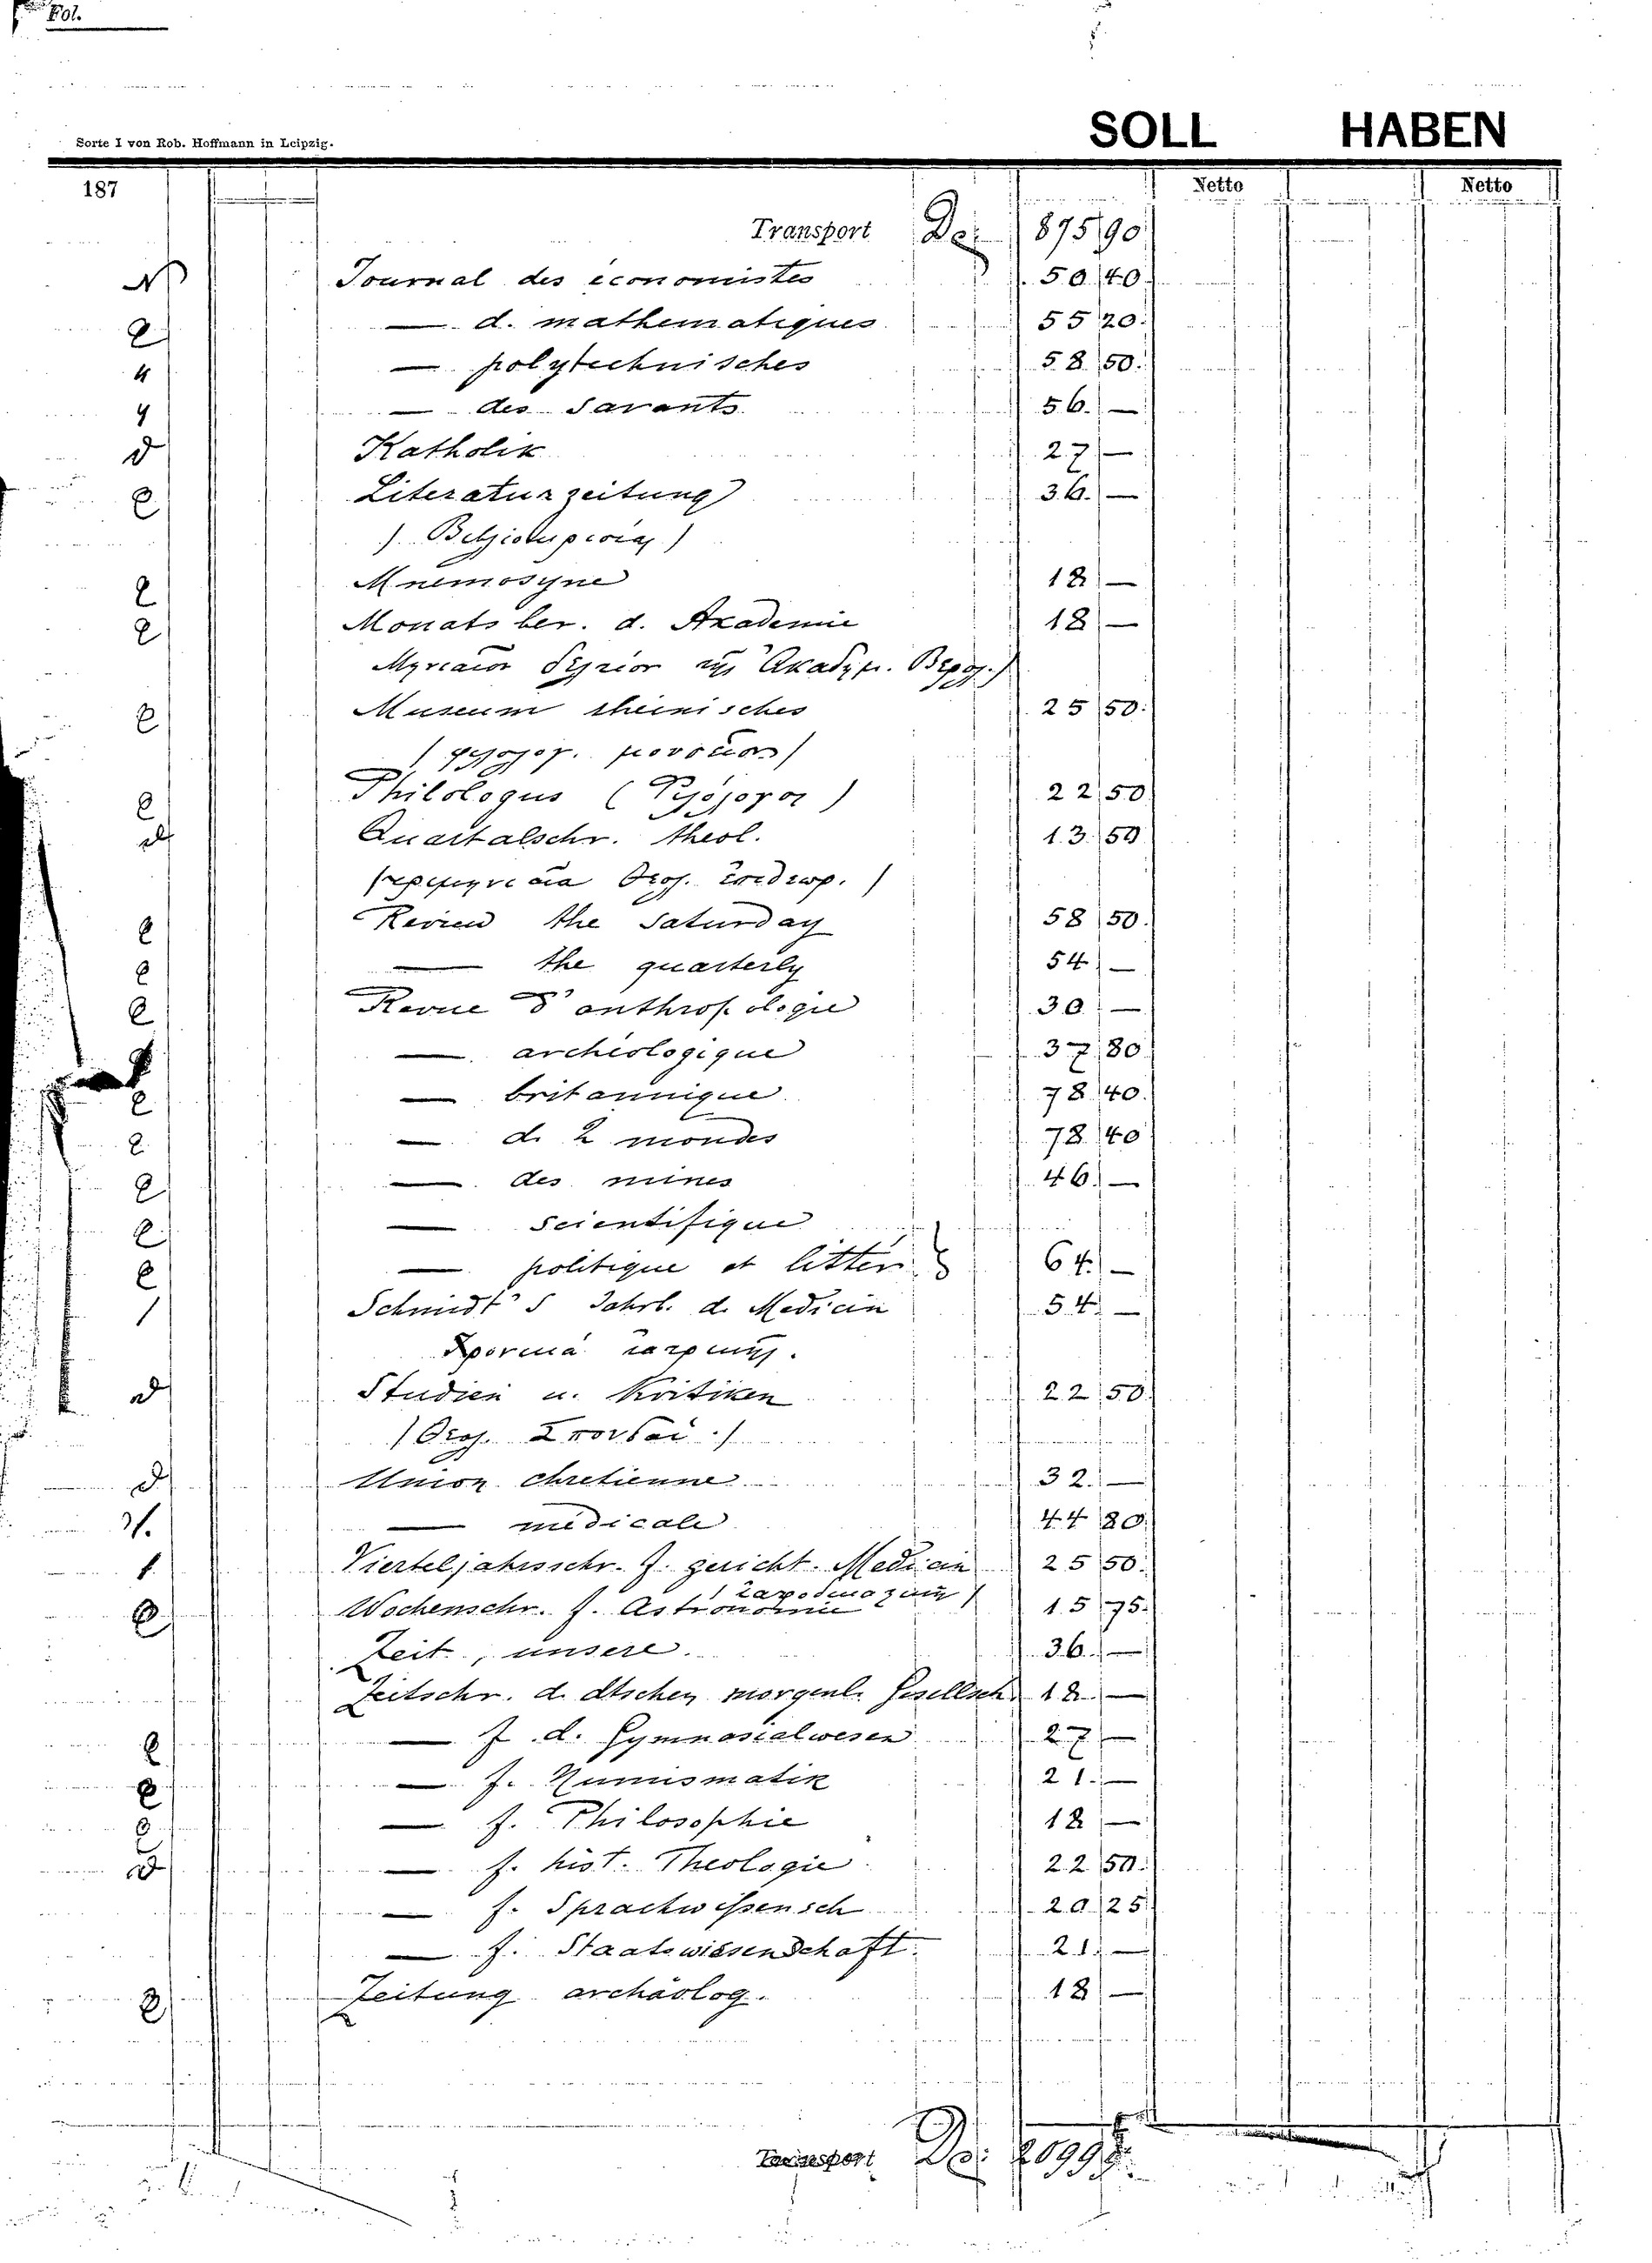 Fol.
Sorte I von Rob. Hoffmann in Leipzig.
SOLL HABEN
187 Netto Netto
Transport 895 90
Journal des economistes 50 40
— d. mathematiques 55 20
— polytechnisches 58 50
— des Savants 56 —
Katholik 27 —
Literaturzeitung 36 —
Mnemosyne 18 —
Monatsber. d. Akademie 18 —
Museum rheinisches 25 50
Philologus ( ) 22 50
Quartalschr. theol. 13 50
Review the Saturday 58 50
— the quarterly 54 —
Revue d'anthropologie 30 —
— archéologique 37 80
— britannique 78 40
— d. 2 mondes 78 40
— des mines 46 —
— scientifique
— politique et litter. 64 —
Schmidt's Jahrb. d. Medicin 54 —
Studien u. Kritiken 22 50
Union chretienne 32 —
— medicale 44 80
Vierteljahrsschr. f. gericht. Medicin 25 50
Wochenschr. f. Astronomie 15 75
Zeit, unsere. 36 —
Zeitschr. d. dtschen morgenl. Gesellsch. 18 —
— f. d. Gymnasialwesen 27 —
— f. Numismatik 21 —
— f. Philosophie 18 —
— f. hist. Theologie 22 50
— f. Sprachwissensch 20 25
— f. Staatswissenschaft. 21 —
Zeitung archäolog. 18 —
Transport